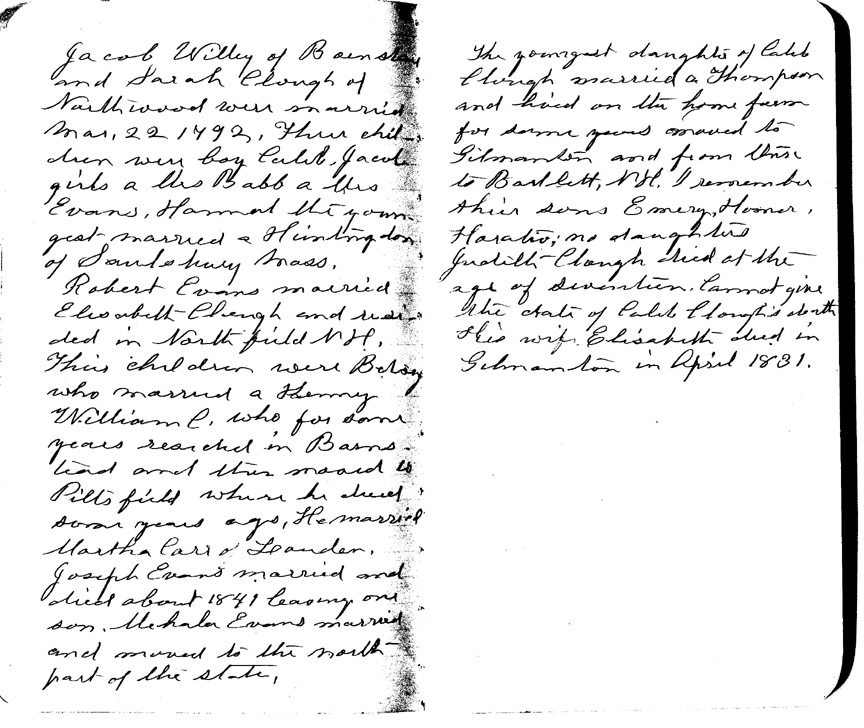 Jacob Willey of Barnstead
and Sarah Clough of
Northwood were married
Mar, 22 1792, Their chil-
dren were boy Caleb, Jacob
girls a Mrs Babb a Mrs
Evans, Hannah the youn-
gest married a Huntingdon
of Mass.
Robert Evans married
Elisabeth Clough and resi-
ded in Northfield N H,
Their children were Betsey
who married a Henry
William C, who for some
years resided in Barns-
tead and then moved to
Pittsfield where he died
some years ago, He married
Martha Carr of Louden,
Joseph Evans married and
died about 1841 leaving one
son. Mehala Evans married
and moved to the north
part of the state,
The youngest daughter of Caleb
Clough married a Thompson
and lived on the home farm
for some years moved to
Gilmanton and from there
to Bartlett, N H. I remember
their sons Emery, Homer,
Horatio; no daughters
Judith Clough died at the
age of seventeen. Cannot give
the date of Caleb Clough's death
His wife Elisabeth died in
Gilmanton in April 1831.